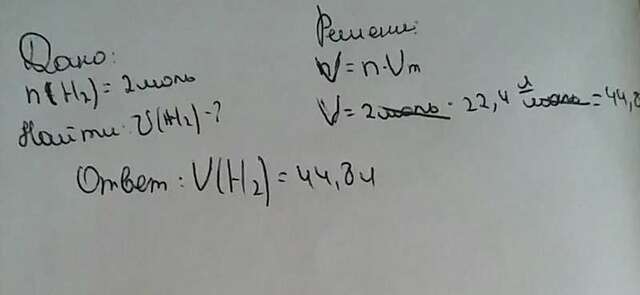 Дано:
n(H₂) = 2 моль
Найти: V(H₂) - ?
Решение:
V = n · Vm
V = 2 моль · 22,4 л/моль = 44,8
Ответ: V(H₂) = 44,8 л